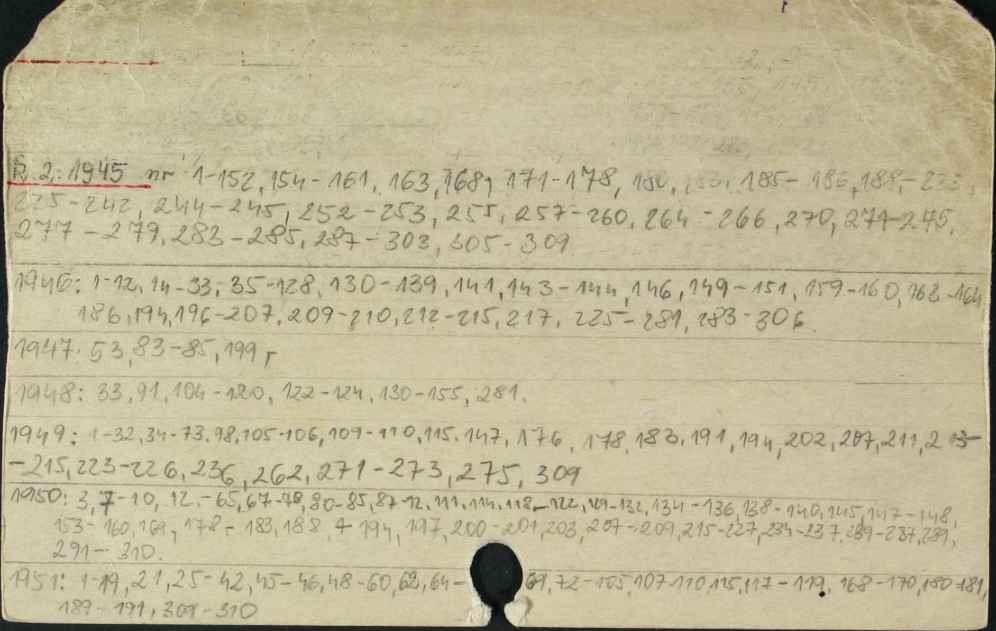 R. 2: 1945 nr 1-152, 154-161, 163, 168, 171-178, 180, 185-186, 188-223,
225-242, 244-245, 252-253, 255, 257-260, 264-266, 270, 274-275,
277-279, 283-285, 287-303, 305-309.
1946: 1-12, 14-33, 35-128, 130-139, 141, 143-144, 146, 149-151, 159-160, 163-164
186, 194, 196-207, 209-210, 212-215, 217, 225-281, 283-306.
1947: 53, 83-85, 199,
1948: 33, 91, 104-120, 122-124, 130-155, 281.
1949: 1-32, 34-73, 98, 105-106, 109-110, 115, 147, 176, 178, 183, 191, 194, 202, 207, 211, 213-
-215, 223-226, 236, 262, 271-273, 275, 309
1950: 3, 7-10, 12-65, 67-78, 80-85, 87- 111, 114, 118-122, 129-132, 134-136, 138-140, 145, 147-148,
153-160, 169, 178-183, 188, 194, 197, 200-201, 203, 207-209, 215-227, 234-237, 239-287, 289,
291-310.
1951: 1-19, 21, 25-42, 45-46, 48-60, 62, 64- 69, 72-105, 107-110, 115, 117-119, 168-170, 180-181,
189-191, 309-310